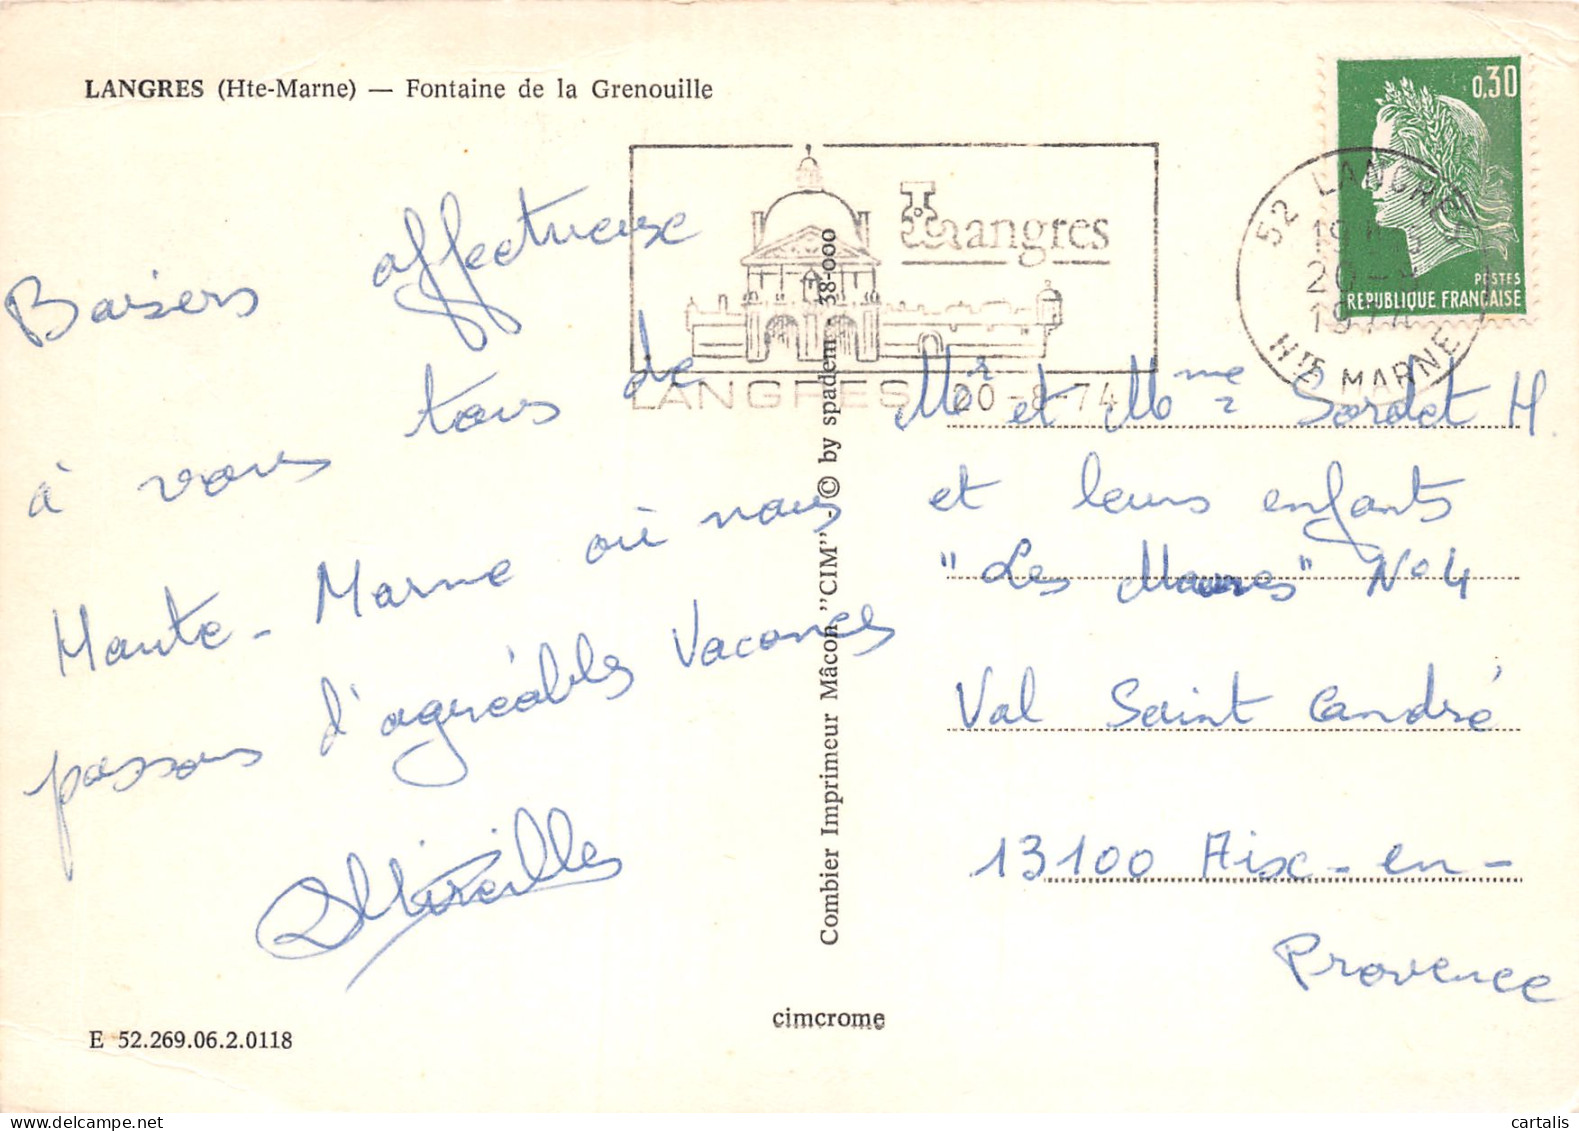 LANGRES (Hte-Marne) — Fontaine de la Grenouille
0,30
POSTES
REPUBLIQUE FRANÇAISE
52 LANGRES
20-8
1974
Hte MARNE
Langres
LANGRES 20-8-74
Baisers affectueux
à vous tous de
Haute-Marne où nous
passons d'agréables Vacances
Mireille
Combier Imprimeur Mâcon "CIM" - © by spadem - 38-000
Mr et Mme Sordet H
et leurs enfants
"Les Mauves" No 4
Val Saint André
13100 Aix-en-
Provence
cimcrome
E 52.269.06.2.0118
cartalis